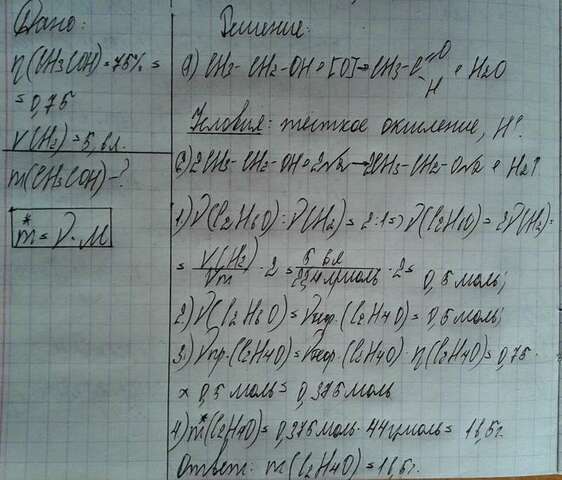 Дано:
η(CH3COH)=75%=
=0,75
V(H2)=5,6л.
m(CH3COH)-?
m*=ν·M
Решение:
а) CH3-CH2-OH+[O]→CH3-C=O H + H2O
Условия: жёсткое окисление, H⁺.
б) 2CH3-CH2-OH+2Na→2CH3-CH2-ONa + H2↑
1) ν(C2H6O):ν(H2)=2:1=>ν(C2H6O)=2ν(H2)=
= V(H2)/Vm · 2 = 5,6л/22,4л/моль · 2 = 0,5 моль;
2) ν(C2H6O)=νтеор.(C2H4O)=0,5моль;
3) νпр.(C2H4O)=νтеор.(C2H4O)·η(C2H4O)=0,75·
× 0,5 моль= 0,375 моль
4) m*(C2H4O)=0,375моль·44г/моль= 16,5г.
Ответ: m(C2H4O)=16,5г.